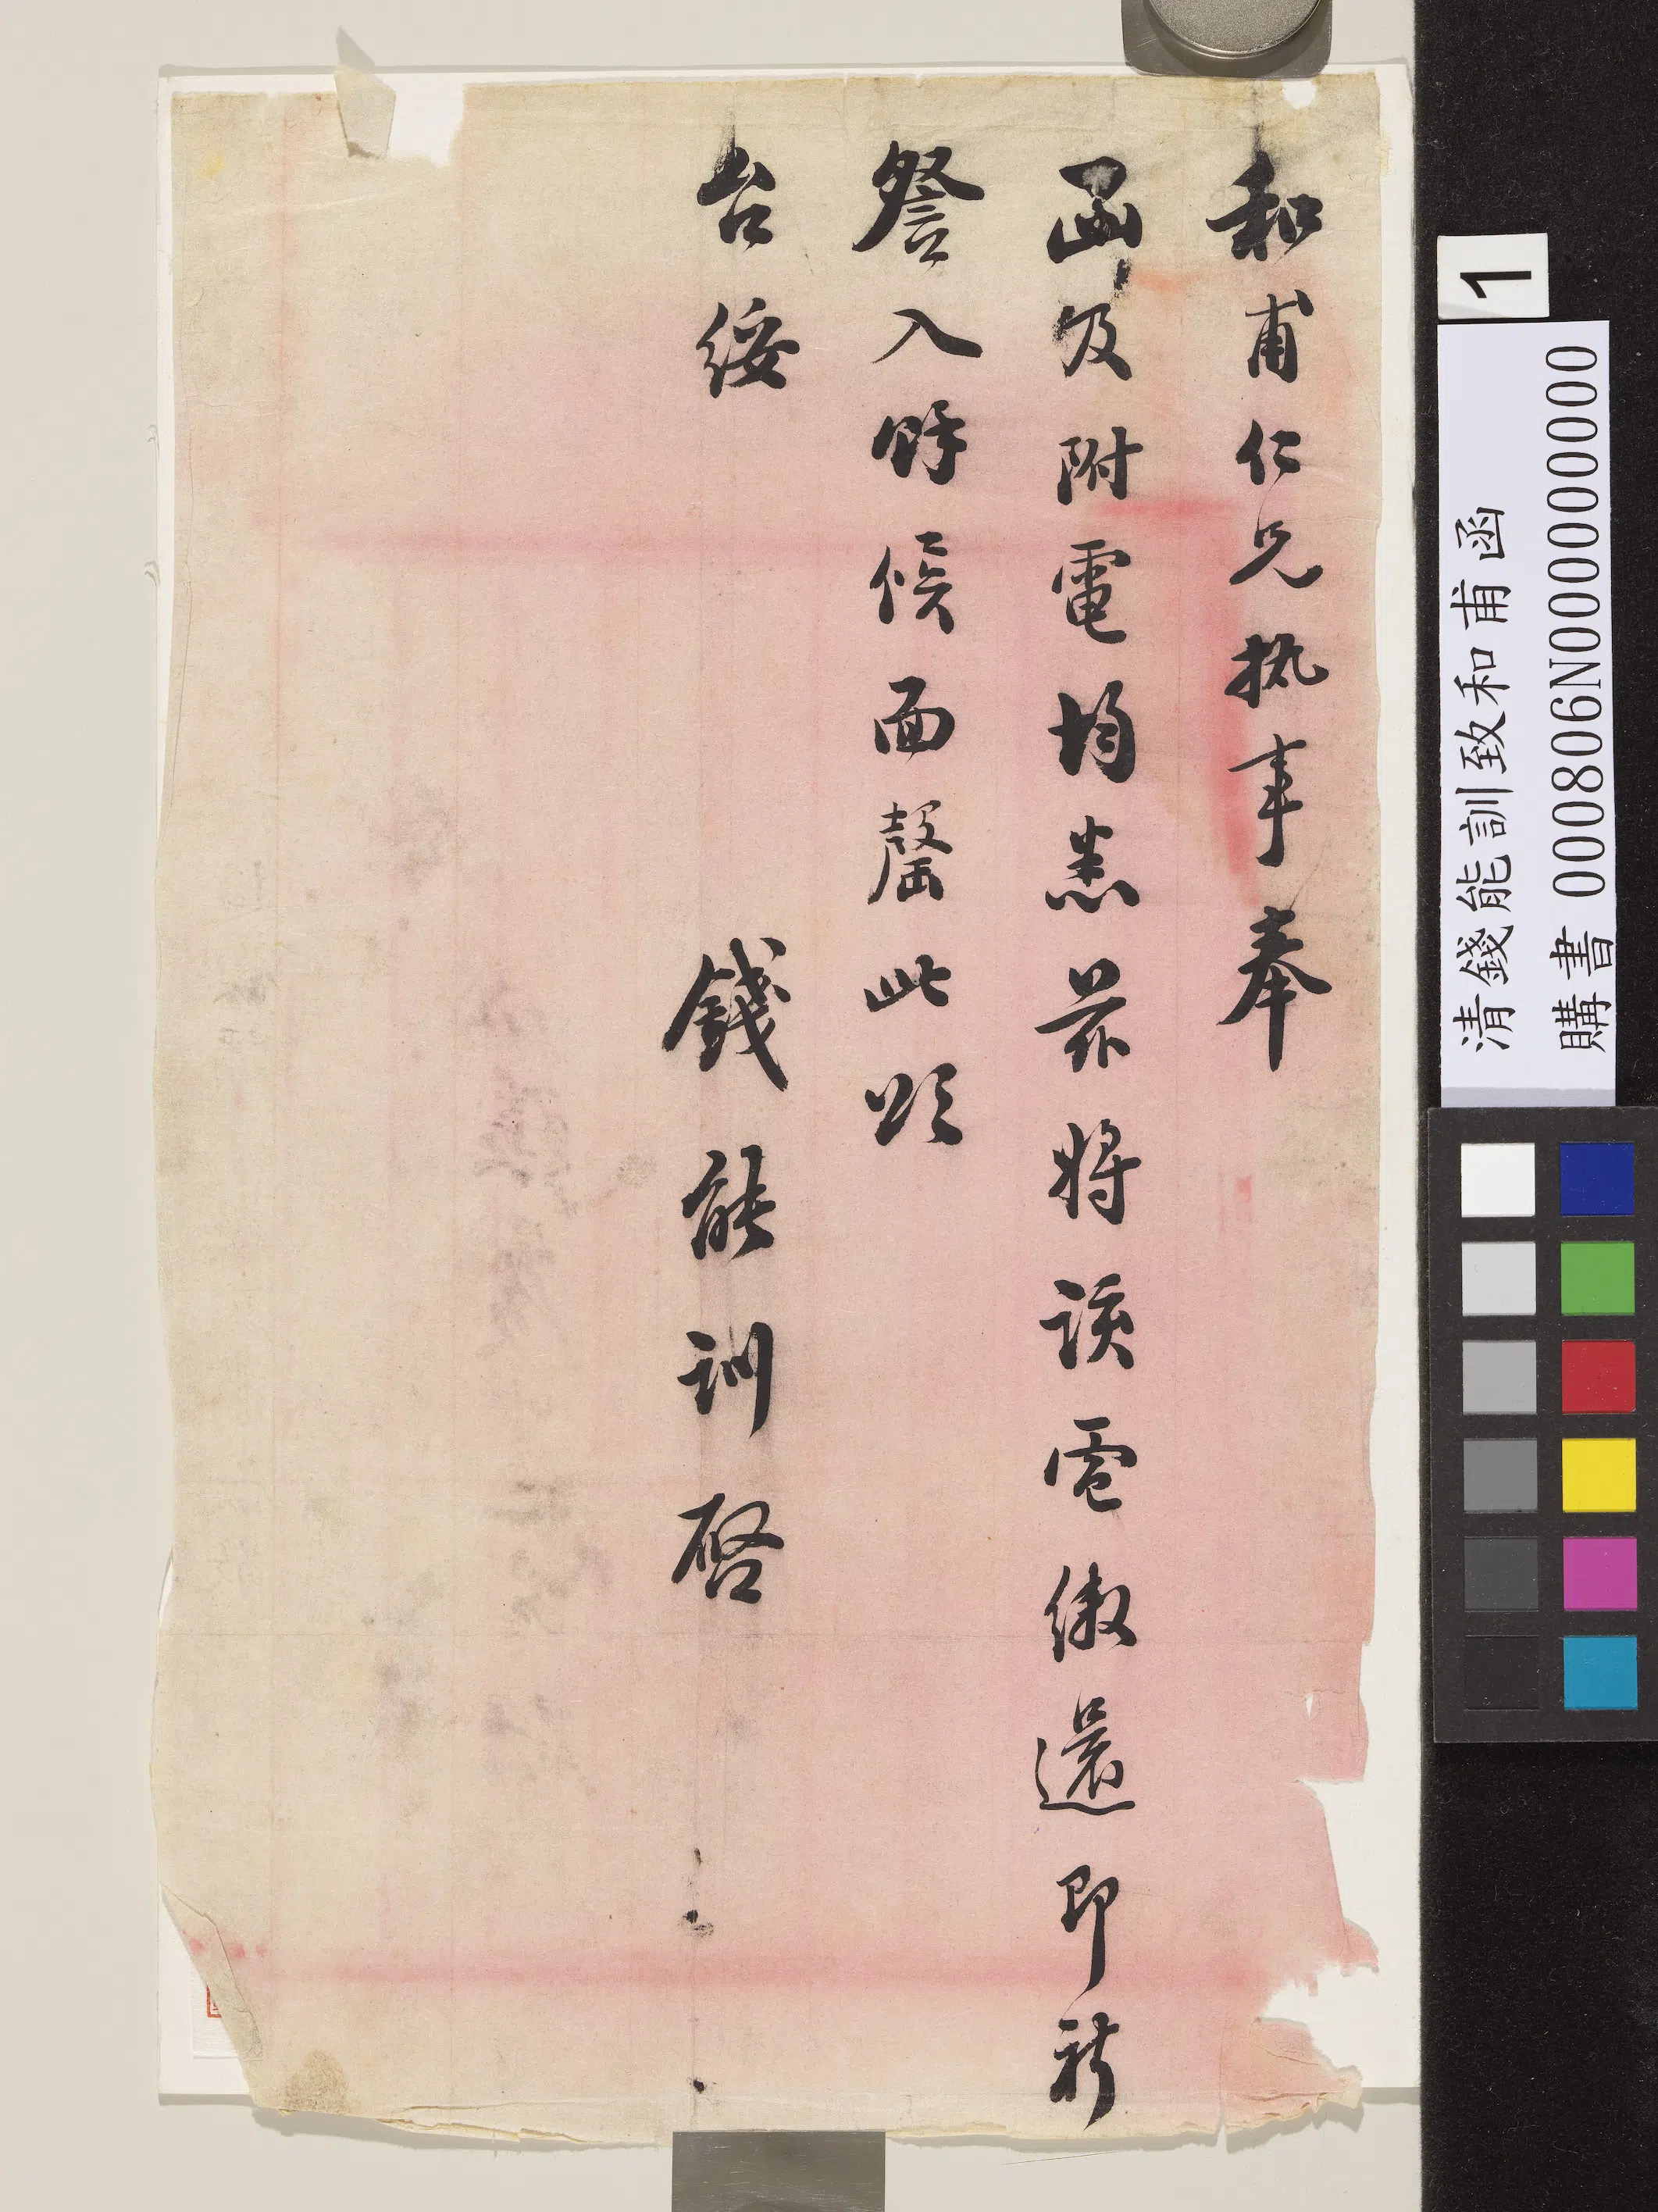 和甫仁兄执事奉
函及附電均悉茲將該電繳還即祈
詧入時候面罄此頌
台綏
錢能訓啓
1
清錢能訓致和甫函
購書 000806N000000000